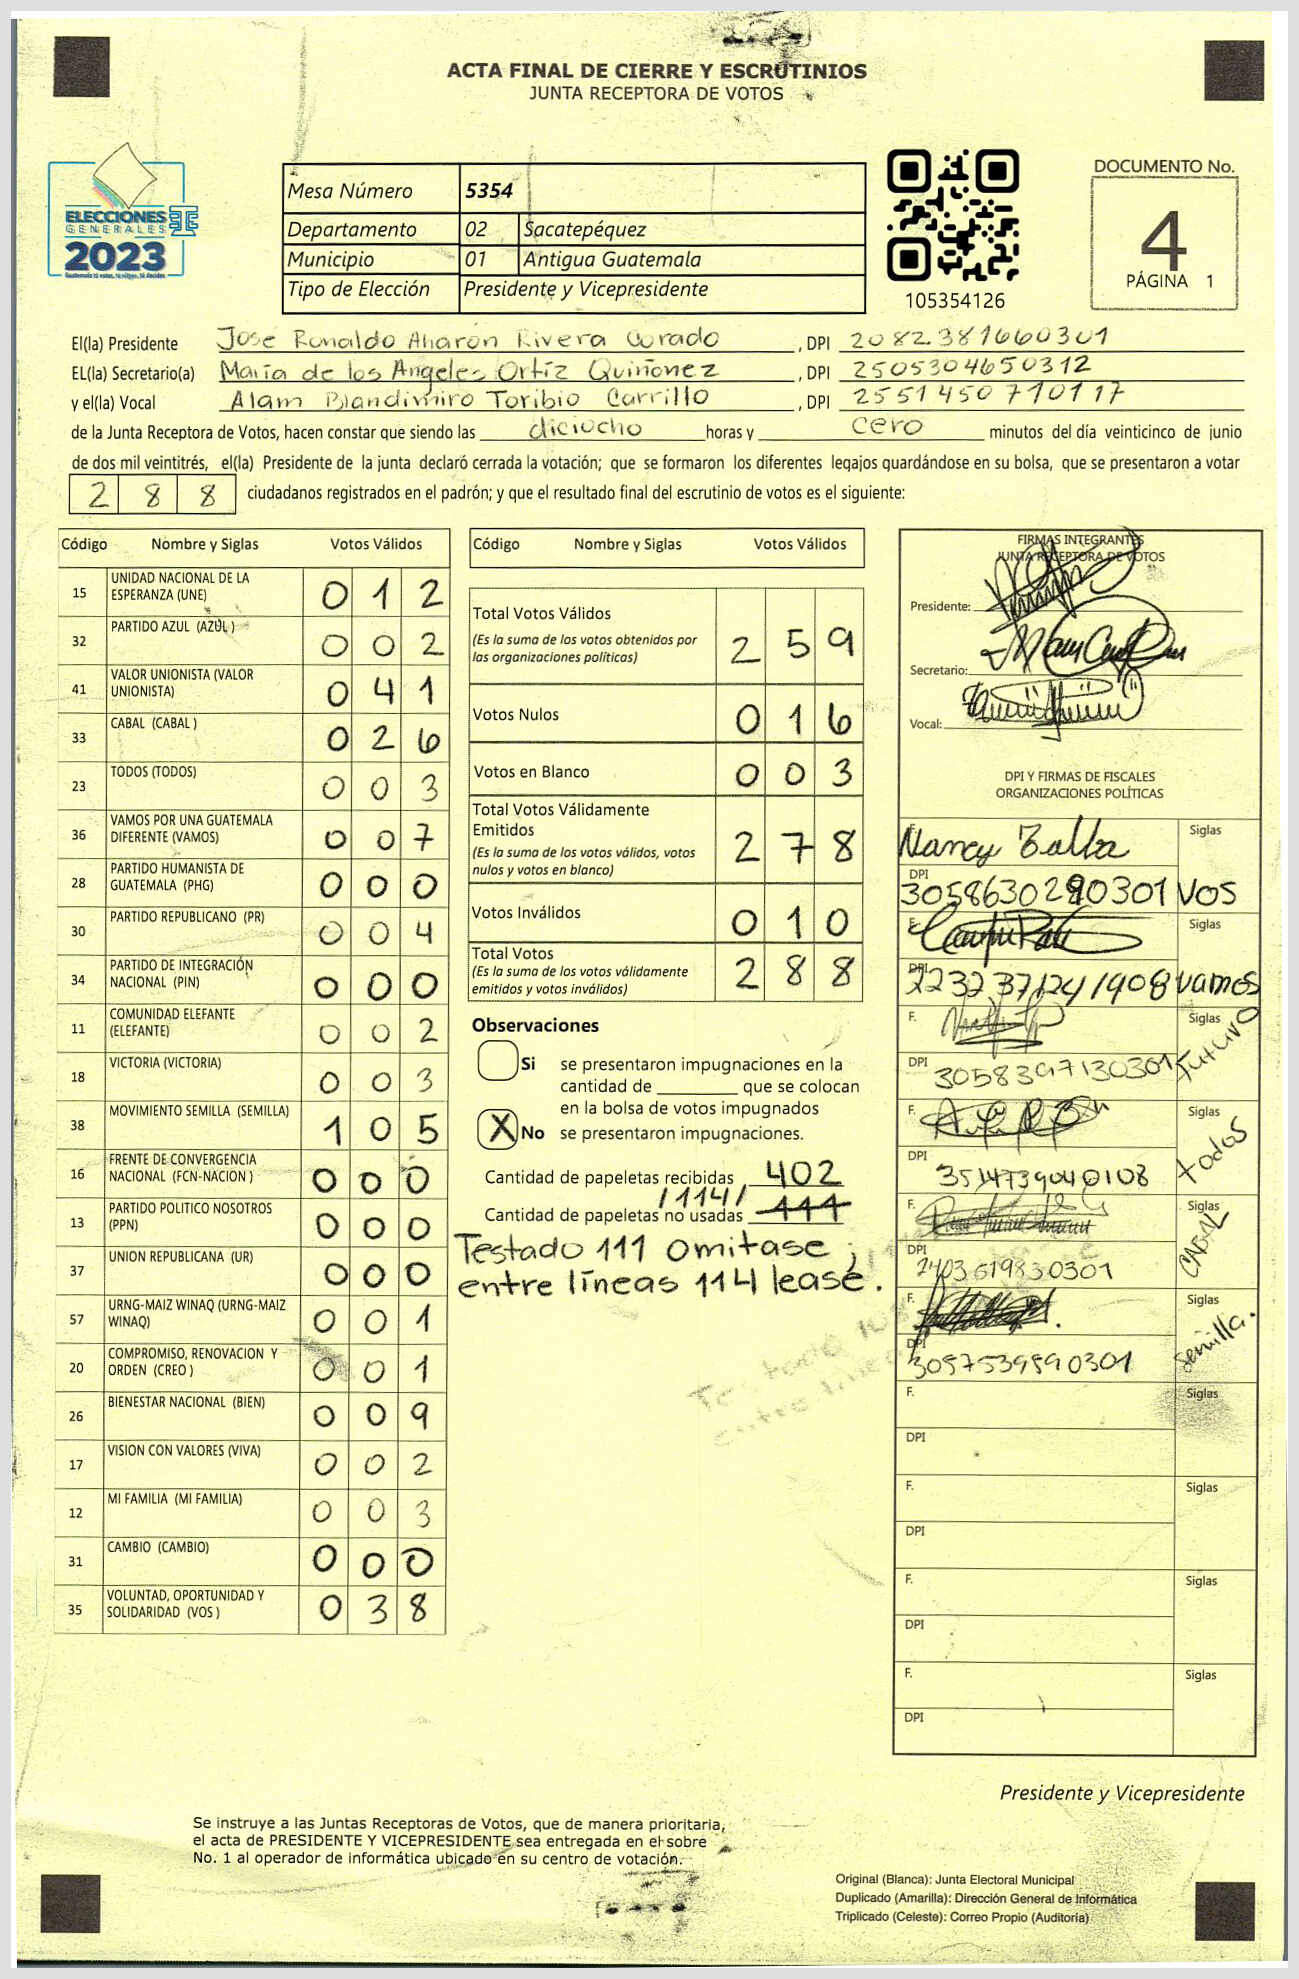 ACTA FINAL DE CIERRE Y ESCRUTINIOS
JUNTA RECEPTORA DE VOTOS
ELECCIONES
GENERALES
2023
Mesa Número 5354
Departamento 02 Sacatepéquez
Municipio 01 Antigua Guatemala
Tipo de Elección Presidente y Vicepresidente
105354126
DOCUMENTO No.
4
PÁGINA 1
El(la) Presidente Jose Ronaldo Aharon Rivera Curado, DPI 2082381660301
EL(la) Secretario(a) María de los Angeles Ortíz Quiñonez, DPI 2505304650312
y el(la) Vocal Alam Blandimiro Toribio Carrillo, DPI 2551450710117
de la Junta Receptora de Votos, hacen constar que siendo las diciocho horas y cero minutos del día veinticinco de junio
de dos mil veintitrés, el(la) Presidente de la junta declaró cerrada la votación; que se formaron los diferentes legajos guardándose en su bolsa, que se presentaron a votar
288 ciudadanos registrados en el padrón; y que el resultado final del escrutinio de votos es el siguiente:
Código Nombre y Siglas Votos Válidos
15 UNIDAD NACIONAL DE LA ESPERANZA (UNE) 012
32 PARTIDO AZUL (AZUL ) 002
41 VALOR UNIONISTA (VALOR UNIONISTA) 041
33 CABAL (CABAL ) 026
23 TODOS (TODOS) 003
36 VAMOS POR UNA GUATEMALA DIFERENTE (VAMOS) 007
28 PARTIDO HUMANISTA DE GUATEMALA (PHG) 000
30 PARTIDO REPUBLICANO (PR) 004
34 PARTIDO DE INTEGRACIÓN NACIONAL (PIN) 000
11 COMUNIDAD ELEFANTE (ELEFANTE) 002
18 VICTORIA (VICTORIA) 003
38 MOVIMIENTO SEMILLA (SEMILLA) 105
16 FRENTE DE CONVERGENCIA NACIONAL (FCN-NACION ) 000
13 PARTIDO POLITICO NOSOTROS (PPN) 000
37 UNION REPUBLICANA (UR) 000
57 URNG-MAIZ WINAQ (URNG-MAIZ WINAQ) 001
20 COMPROMISO, RENOVACION Y ORDEN (CREO ) 001
26 BIENESTAR NACIONAL (BIEN) 009
17 VISION CON VALORES (VIVA) 002
12 MI FAMILIA (MI FAMILIA) 003
31 CAMBIO (CAMBIO) 000
35 VOLUNTAD, OPORTUNIDAD Y SOLIDARIDAD (VOS ) 038
Código Nombre y Siglas Votos Válidos
Total Votos Válidos 259
(Es la suma de los votos obtenidos por
las organizaciones políticas)
Votos Nulos 016
Votos en Blanco 003
Total Votos Válidamente
Emitidos 278
(Es la suma de los votos válidos, votos
nulos y votos en blanco)
Votos Inválidos 010
Total Votos 288
(Es la suma de los votos válidamente
emitidos y votos inválidos)
Observaciones
Si se presentaron impugnaciones en la
cantidad de ________ que se colocan
en la bolsa de votos impugnados
X No se presentaron impugnaciones.
Cantidad de papeletas recibidas 402
/114/
Cantidad de papeletas no usadas 111
Testado 111 omitase ;
entre líneas 114 lease.
FIRMAS INTEGRANTES
JUNTA RECEPTORA DE VOTOS
Presidente:
Secretario:
Vocal:
DPI Y FIRMAS DE FISCALES
ORGANIZACIONES POLÍTICAS
F. Nancy Siglas
DPI 3058630290301 VOS
F. Siglas
DPI 2232371241908 vamos
F. Siglas
DPI 3058397130301 Futuro
F. Siglas
DPI 3514739040108 todos
F. Siglas
DPI 2403619830301 CABAL
F. Siglas
DPI 3057539590301 semilla.
F. Siglas
DPI
F. Siglas
DPI
F. Siglas
DPI
F. Siglas
DPI
Presidente y Vicepresidente
Se instruye a las Juntas Receptoras de Votos, que de manera prioritaria,
el acta de PRESIDENTE Y VICEPRESIDENTE sea entregada en el sobre
No. 1 al operador de informática ubicado en su centro de votación.
Original (Blanca): Junta Electoral Municipal
Duplicado (Amarilla): Dirección General de Informática
Triplicado (Celeste): Correo Propio (Auditoría)